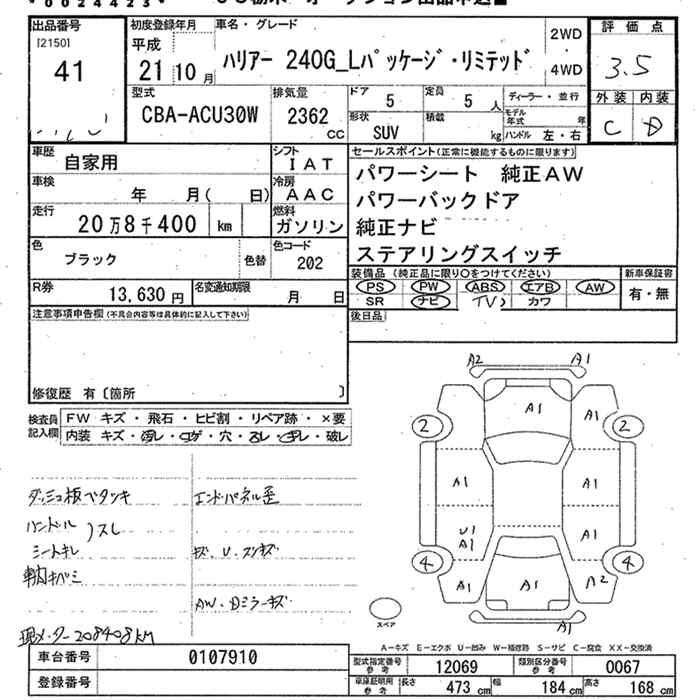 *0024423*
出品番号 初度登録年月 車名・グレード 評価点
[2150] 平成 ハリアー 240G_Lパッケージ・リミテッド 2WD 3.5
41 21 10月 4WD 外装 内装
型式 排気量 ドア 5 定員 5人 ディーラー・並行 C D
CBA-ACU30W 2362 cc 形状 SUV 積載 kg モデル年式 年 ハンドル 左・右
車歴 自家用 シフト IAT セールスポイント(正常に機能するものに限ります)
パワーシート 純正AW
車検 年 月( 日) 冷房 AAC パワーバックドア
走行 20万8千400 km 燃料 ガソリン 純正ナビ
色 ブラック 色替 色コード 202 ステアリングスイッチ
装備品(純正品に限り○をつけてください) 新車保証書
R券 13,630円 名変通知期限 月 日 PS PW ABS エアB AW 有・無
SR ナビ TV カワ
注意事項申告欄(不具合内容等は具体的に記入して下さい) 後日品
修復歴 有〔箇所 〕
検査員記入欄 FW キズ・飛石・ヒビ割・リペア跡・×要
内装 キズ・汚レ・コゲ・穴・スレ・キレ・破レ
A2 A1
A1
2 A1 A1 2
A1 A1
U1 A1 A1
4 4
A1 A1 A2
A1
スペア
ダッシュ板ベタツキ エンドパネル歪
ハンドル スレ
シートキレ キズ、U、スリキズ
AW・Dミラーキズ
現メーター208408KM
A-キズ E-エクボ U-凹み W-補修跡 S-サビ C-腐食 XX-交換済
車台番号 0107910 型式指定番号 参考 12069 類別区分番号 参考 0067
登録番号 車庫証明用 参考 長さ 473 cm 幅 184 cm 高さ 168 cm